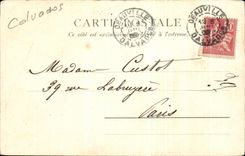 Calvados
CARTE POSTALE
Ce côté est exclusivement réservé à l'adresse.
DEAUVILLE
CALVADOS
DEAUVILLE
CALVADOS
Madame Custot
39 rue Labruyère
Paris